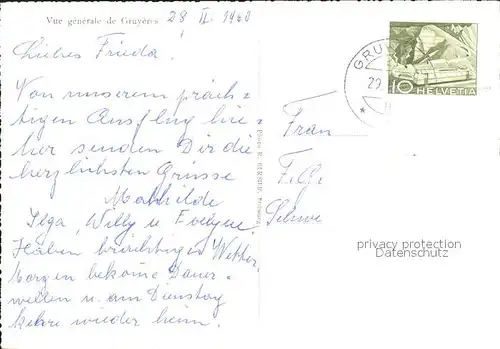 Vue générale de Gruyères
28 II. 1960
Liebes Frieda.
Von unserem präch-
tigen Ausflug hie-
her senden Dir die
herzlichsten Grüsse
Mathilde
Ilga, Willy u. Evelyne
Haben prächtiges Wetter
Morgen bekome Dauer-
wellen u. am Dienstag
kehre wieder heim.
GRU
29
10 HELVETIA
Frau
F.G.
Schwe
privacy protection
Datenschutz